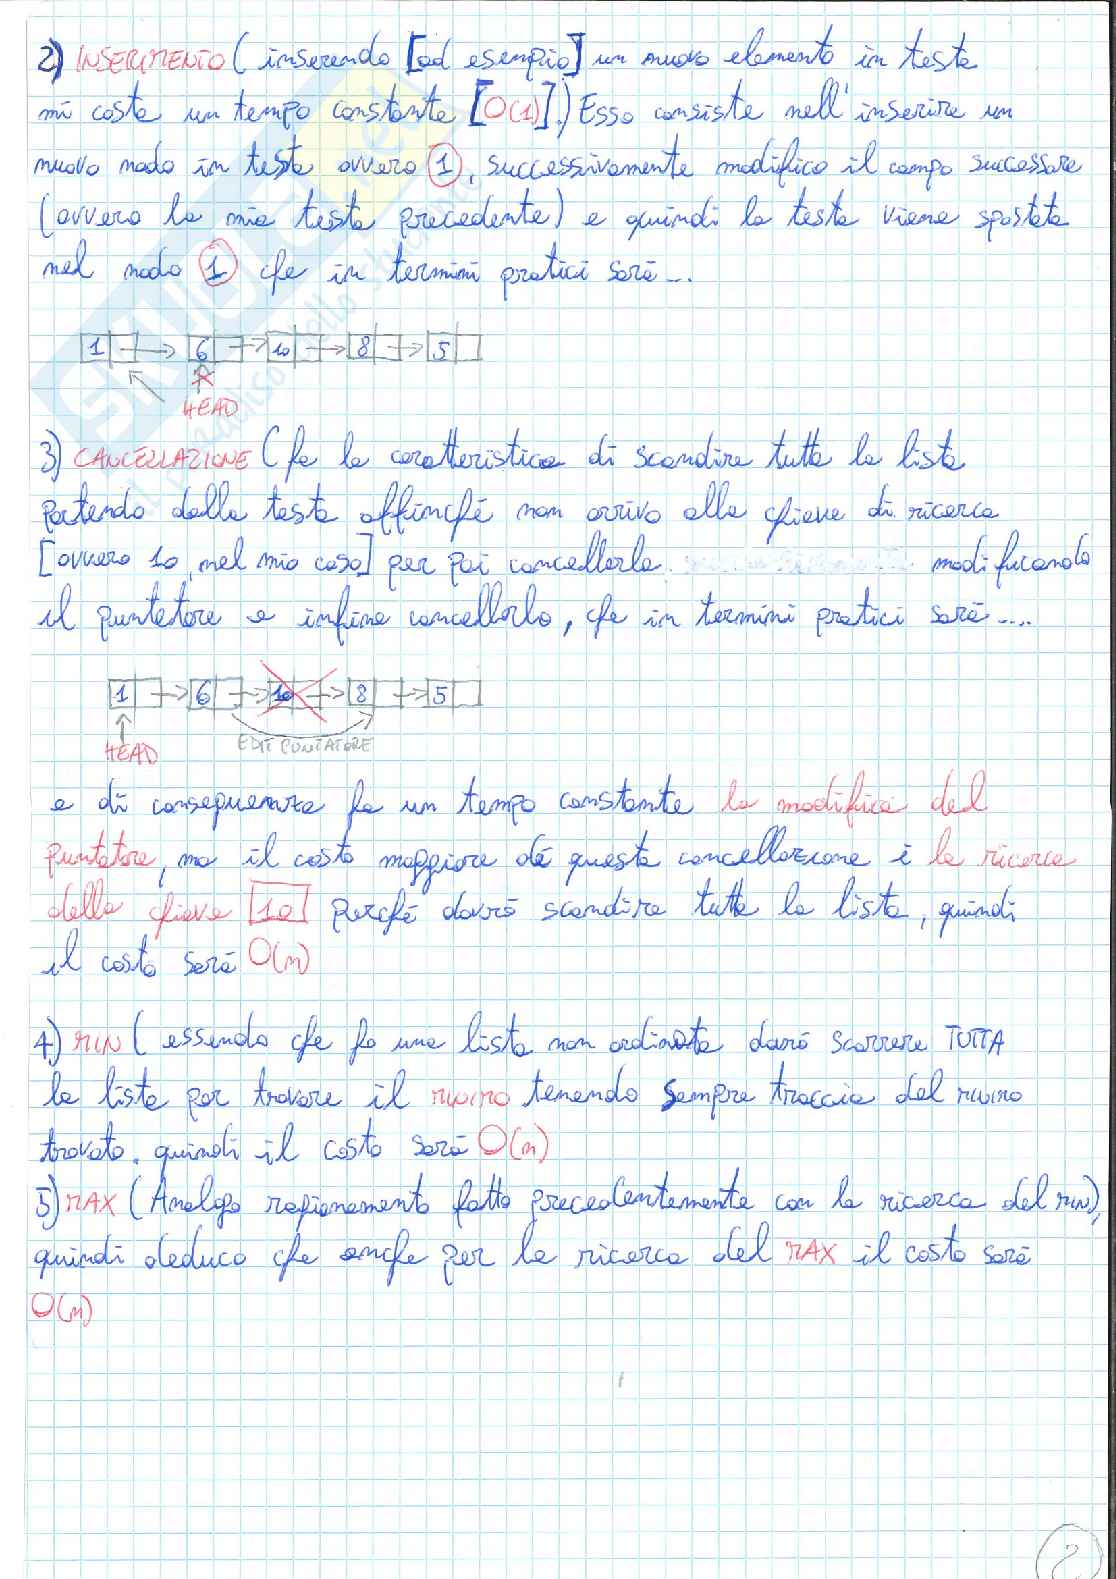 2) INSERIMENTO ( inserendo [ad esempio] un nuovo elemento in testa
mi costa un tempo constante [O(1)].) Esso consiste nell'inserire un
nuovo nodo in testa ovvero 1, successivamente modifico il campo successore
(ovvero la mia testa precedente) e quindi la testa viene spostata
nel nodo 1 che in termini pratici sarà...
1 6 10 8 5
HEAD
3) CANCELLAZIONE ( ha la caratteristica di scandire tutta la lista
partendo dalla testa affinché non arrivo alla chiave di ricerca
[ovvero 10, nel mio caso] per poi cancellarla modificando
il puntatore e infine cancellarlo, che in termini pratici sarà....
1 6 10 8 5
HEAD EDIT PUNTATORE
e di conseguenza ha un tempo constante la modifica del
puntatore, ma il costo maggiore di questa cancellazione è la ricerca
della chiave [10] perché dovrò scandire tutta la lista, quindi
il costo sarà O(n)
4) MIN ( essendo che ho una lista non ordinata dovrò scorrere TUTTA
la lista per trovare il minimo tenendo sempre traccia del minimo
trovato. quindi il costo sarà O(n)
5) MAX ( Analogo ragionamento fatto precedentemente con la ricerca del MIN),
quindi deduco che anche per la ricerca del MAX il costo sarà
O(n)
2